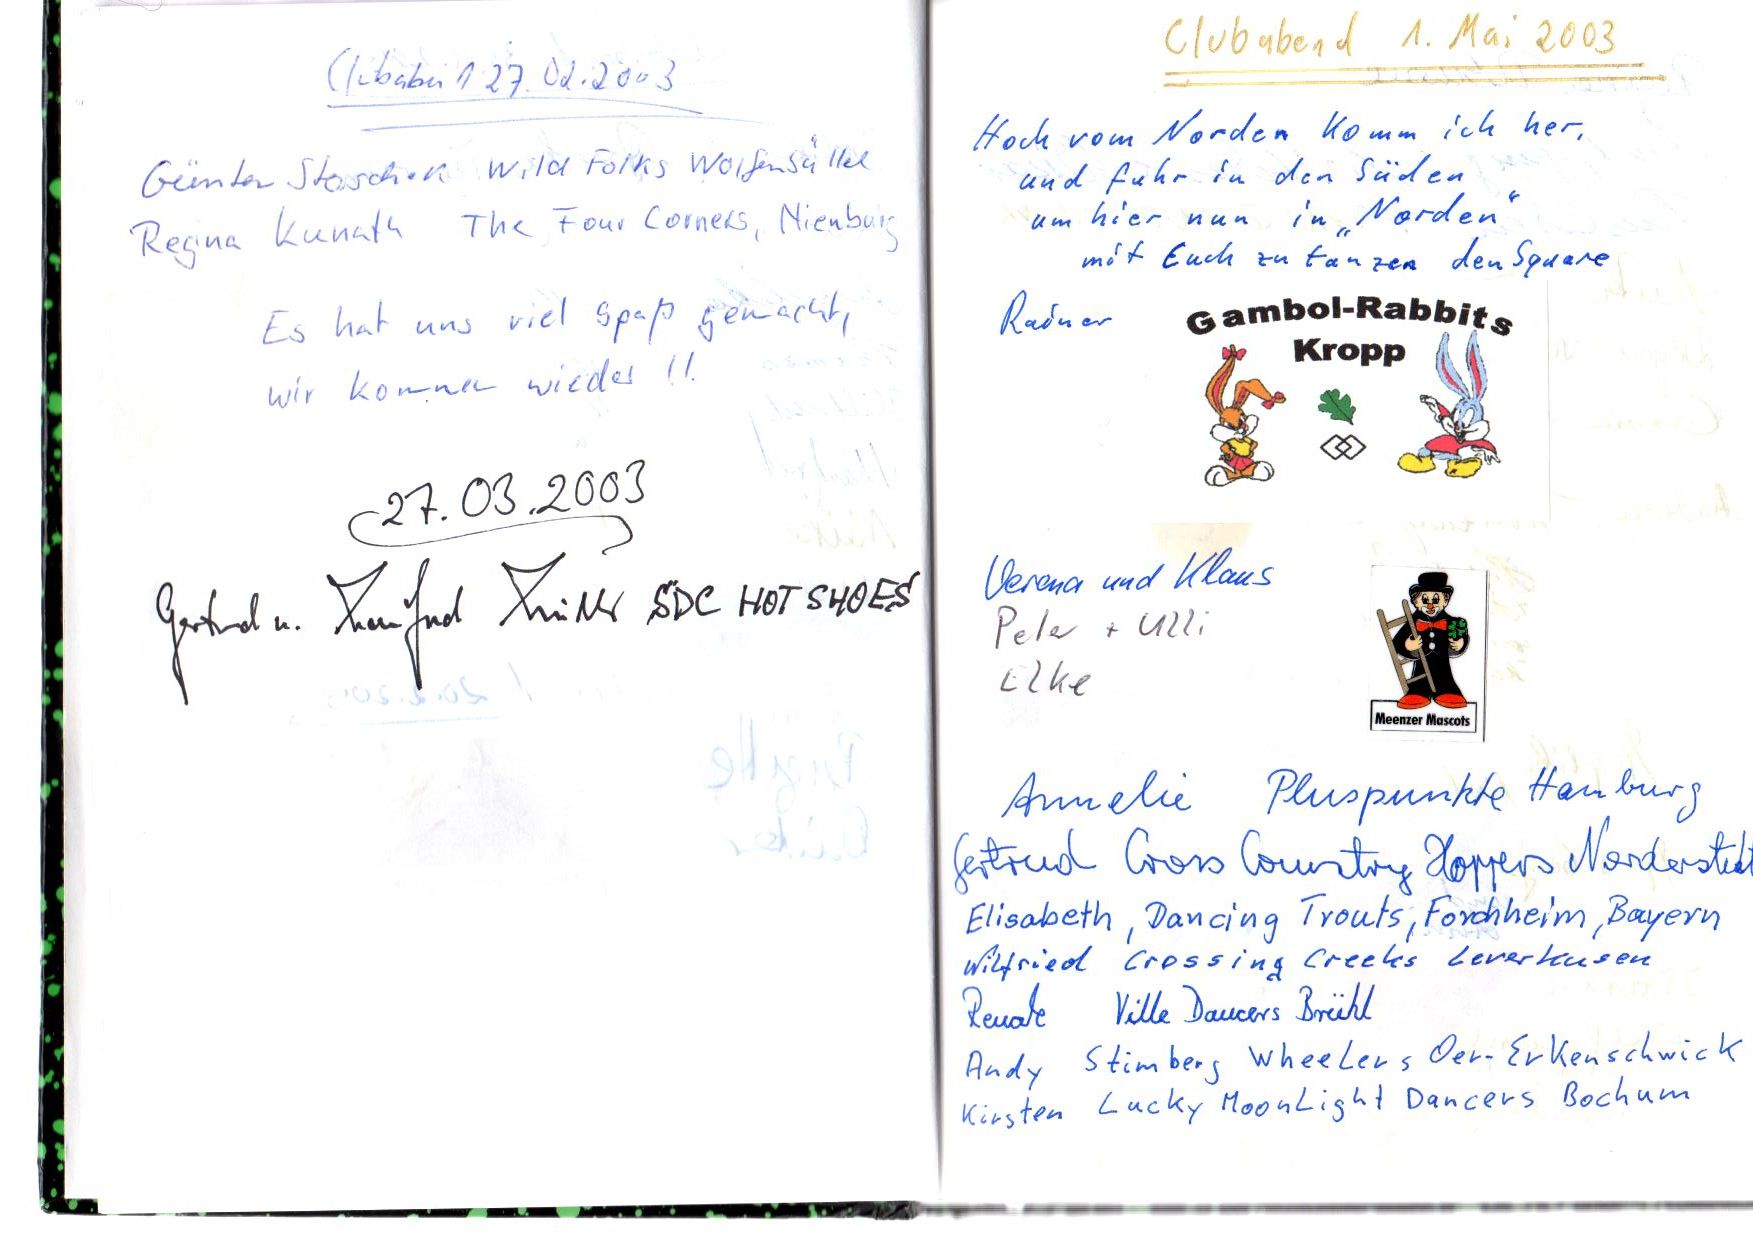 Clubabend 27.02.2003
Günter Wild Folks
Regina Kunath The Four Corners, Nienburg
Es hat uns viel Spaß gemacht,
wir kommen wieder !!
27.03.2003
Gertrud u. Manfred SDC HOT SHOES
Clubabend 1. Mai 2003
Hoch vom Norden komm ich her,
und fuhr in den Süden
um hier nun in „Norden“
mit Euch zu tanzen den Square
Rainer
Gambol-Rabbits
Kropp
Verena und Klaus
Peter + Ulli
Elke
Meenzer Mascots
Annelie Pluspunkte Hamburg
Gertrud Cross Country Hoppers Norderstedt
Elisabeth, Dancing Trouts, Forchheim, Bayern
Wilfried Crossing Creeks Leverkusen
Renate Ville Dancers Brühl
Andy Stimberg Wheelers Oer-Erkenschwick
Kirsten Lucky Moonlight Dancers Bochum